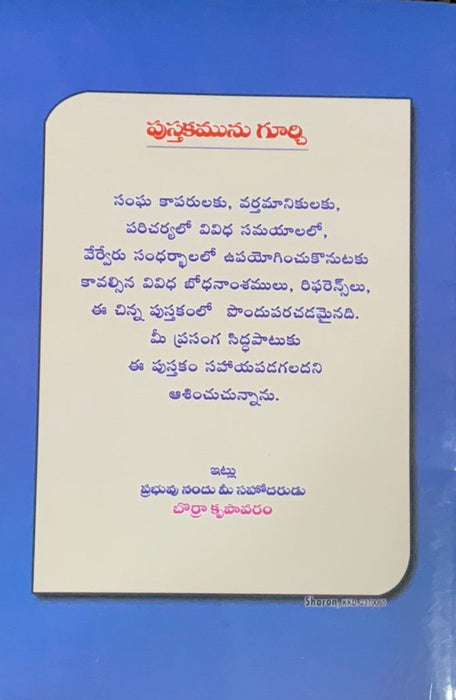 పుస్తకమును గూర్చి
సంఘ కాపరులకు, వర్తమానికులకు,
పరిచర్యలో వివిధ సమయాలలో,
వేర్వేరు సంధర్భాలలో ఉపయోగించుకొనుటకు
కావల్సిన వివిధ బోధనాంశములు, రిఫరెన్స్‌లు,
ఈ చిన్న పుస్తకంలో పొందుపరచడమైనది.
మీ ప్రసంగ సిద్ధపాటుకు
ఈ పుస్తకం సహాయపడగలదని
ఆశించుచున్నాను.
ఇట్లు
ప్రభువు నందు మీ సహోదరుడు
బొర్రా కృపావరం
Sharon, KKD